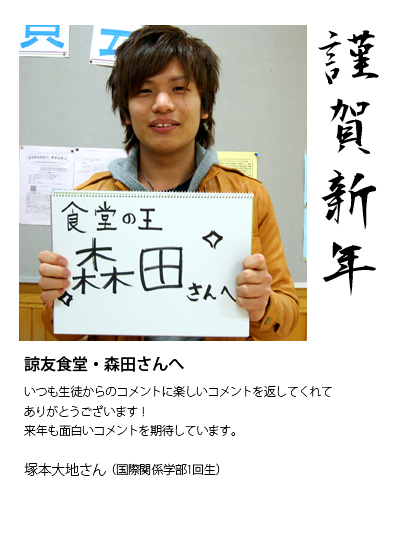 謹賀新年
食堂の王
森田さんへ
諒友食堂・森田さんへ
いつも生徒からのコメントに楽しいコメントを返してくれて
ありがとうございます！
来年も面白いコメントを期待しています。
塚本大地さん（国際関係学部1回生）